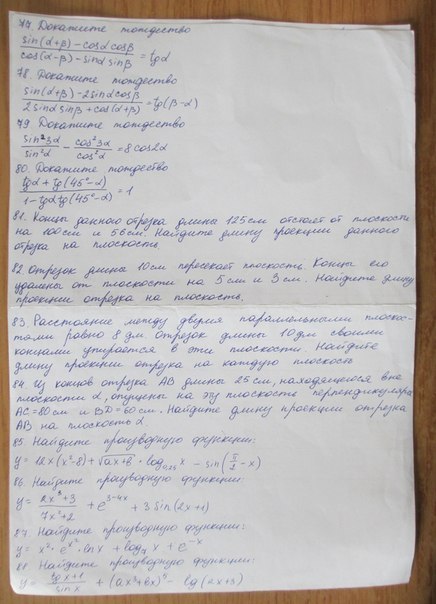 77. Докажите тождество
sin(α+β) - cosα cosβ / cos(α-β) - sinα sinβ = tgα
78. Докажите тождество
sin(α+β) - 2sinα cosβ / 2sinα sinβ + cos(α+β) = tg(β-α)
79 Докажите тождество
sin²3α / sin²α - cos²3α / cos²α = 8cos2α
80. Докажите тождество
tgα + tg(45°-α) / 1 - tgα tg(45°-α) = 1
81. Концы данного отрезка длины 125см отстоят от плоскости
на 100см и 56см. Найдите длину проекции данного
отрезка на плоскость.
82 Отрезок длины 10см пересекает плоскость. Концы его
удалены от плоскости на 5см и 3см. Найдите длину
проекции отрезка на плоскость.
83. Расстояние между двумя параллельными плоскос-
тами равно 8дм. Отрезок длины 10дм своими
концами упирается в эти плоскости. Найдите
длину проекции отрезка на каждую плоскость
84 Из концов отрезка AB длины 25см, находящегося вне
плоскости α, опущены на эту плоскость перпендикуляры
AC=80см и BD=60см. Найдите длину проекции отрезка
AB на плоскость α.
85 Найдите производную функции:
y = 12x(x²-8) + √ax+b · log₀,₂₅ x - sin(π/2 - x)
86. Найдите производную функции:
y = 2x³+3 / 7x²+2 + e³⁻⁴ˣ + 3sin(2x+1)
87. Найдите производную функции:
y = x² · eˣ² · lnx + log₇ x + e⁻ˣ
88 Найдите производную функции:
y = tgx+1 / sinx + (ax³+bx)⁵ - lg(2x+3)